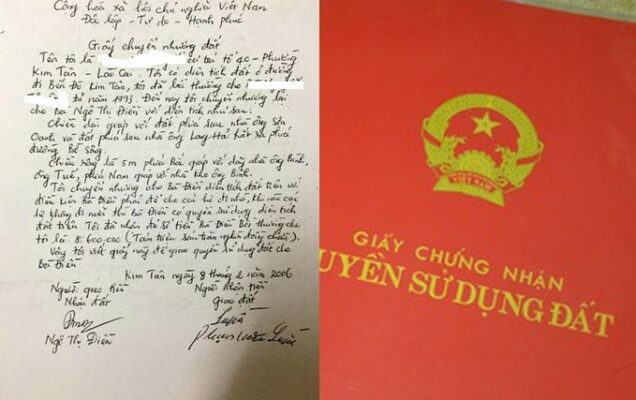 Cộng hoà xã hội chủ nghĩa Việt Nam
Độc lập - Tự do - Hạnh phúc
Giấy chuyển nhường đất
Tên tôi là cư trú tổ 40 - Phường
Kim Tân - Lào Cai. Tôi có diện tích đất ở đường
đi Bến Đá Kim Tân, tôi đã bồi thường cho
từ năm 1993. Đến nay tôi chuyển nhượng lại
cho Bà Ngô Thị Điền với diện tích như sau:
Chiều dài giáp với đất phía sau nhà ông Sơn
Oanh và đất phía sau nhà ông Long Hải hất xả phía
đường Bê Sông.
Chiều rộng là 5m phía Bắc giáp với dãy nhà ông Bình,
ông Tuế, phía Nam giáp với nhà kho ông Bình.
Tôi chuyển nhượng cho Bà Điền diện tích đất trên với
điều kiện Bà Điền phải để cho cái hè đi nhờ, khi nào cái
hè không đi nữa thì Bà Điền có quyền sử dụng diện tích
đất trên. Tôi đã nhận đủ số tiền Bà Điền Bồi thường cho
tôi là 8.600,000 (Tám triệu sáu trăm nghìn đồng chẵn).
Vậy tôi viết giấy này để giao quyền sử dụng đất cho
Bà Điền
Kim Tân ngày 8 tháng 2 năm 2006
Người giao tiền Người nhận tiền
Nhận đất Giao đất
Ngô Thị Điền
VIỆT NAM
GIẤY CHỨNG NHẬN
UYỀN SỬ DỤNG ĐẤT